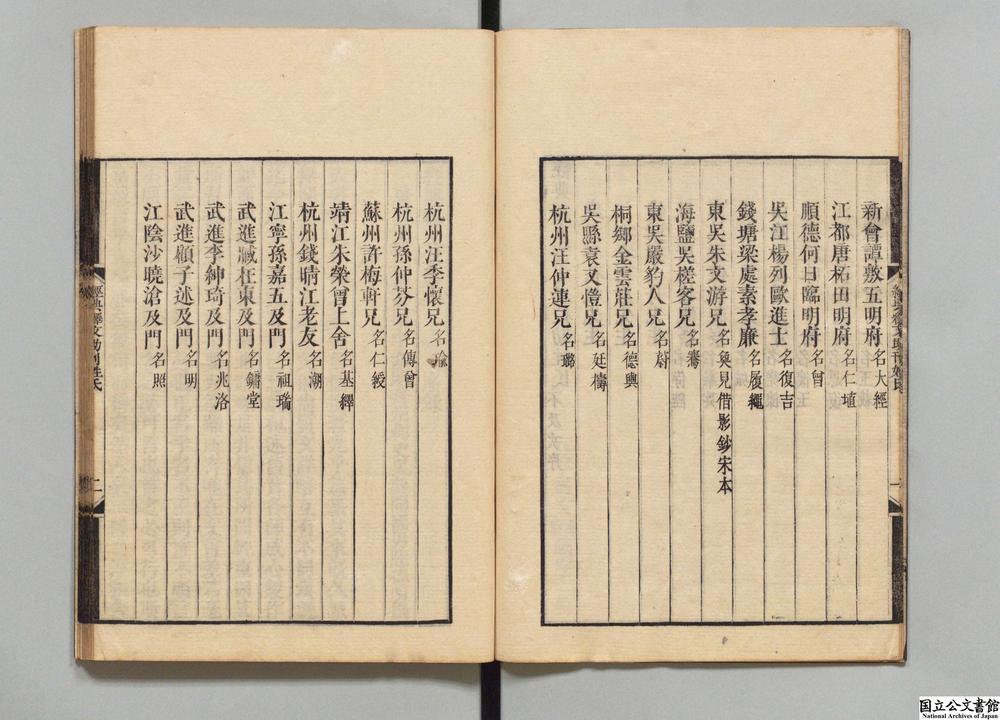 新會譚敷五明府名大經
江都唐柘田明府名仁埴
順德何日臨明府名曾
吳江楊列歐進士名復吉
錢塘梁處素孝廉名履繩
東吳朱文游兄名奐見借影鈔宋本
海鹽吳槎客兄名騫
東吳嚴豹人兄名蔚
桐鄉金雲莊兄名德輿
吳縣袁又愷兄名廷檮
杭州汪仲連兄名瑮
杭州汪季懷兄名瑜
杭州孫仲芬兄名傳曾
蘇州許梅軒兄名仁緩
靖江朱榮曾上舍名基繹
杭州錢晴江老友名潮
江寧孫嘉五及門名祖瑞
武進臧在東及門名鏞堂
武進李紳琦及門名兆洛
武進顧子述及門名明
江陰沙曉滄及門名照
經典釋文助刊姓氏
二
国立公文書館
National Archives of Japan